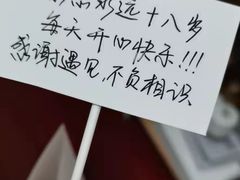 永远十八岁
每天开心快乐!!!
感谢遇见,不负相识